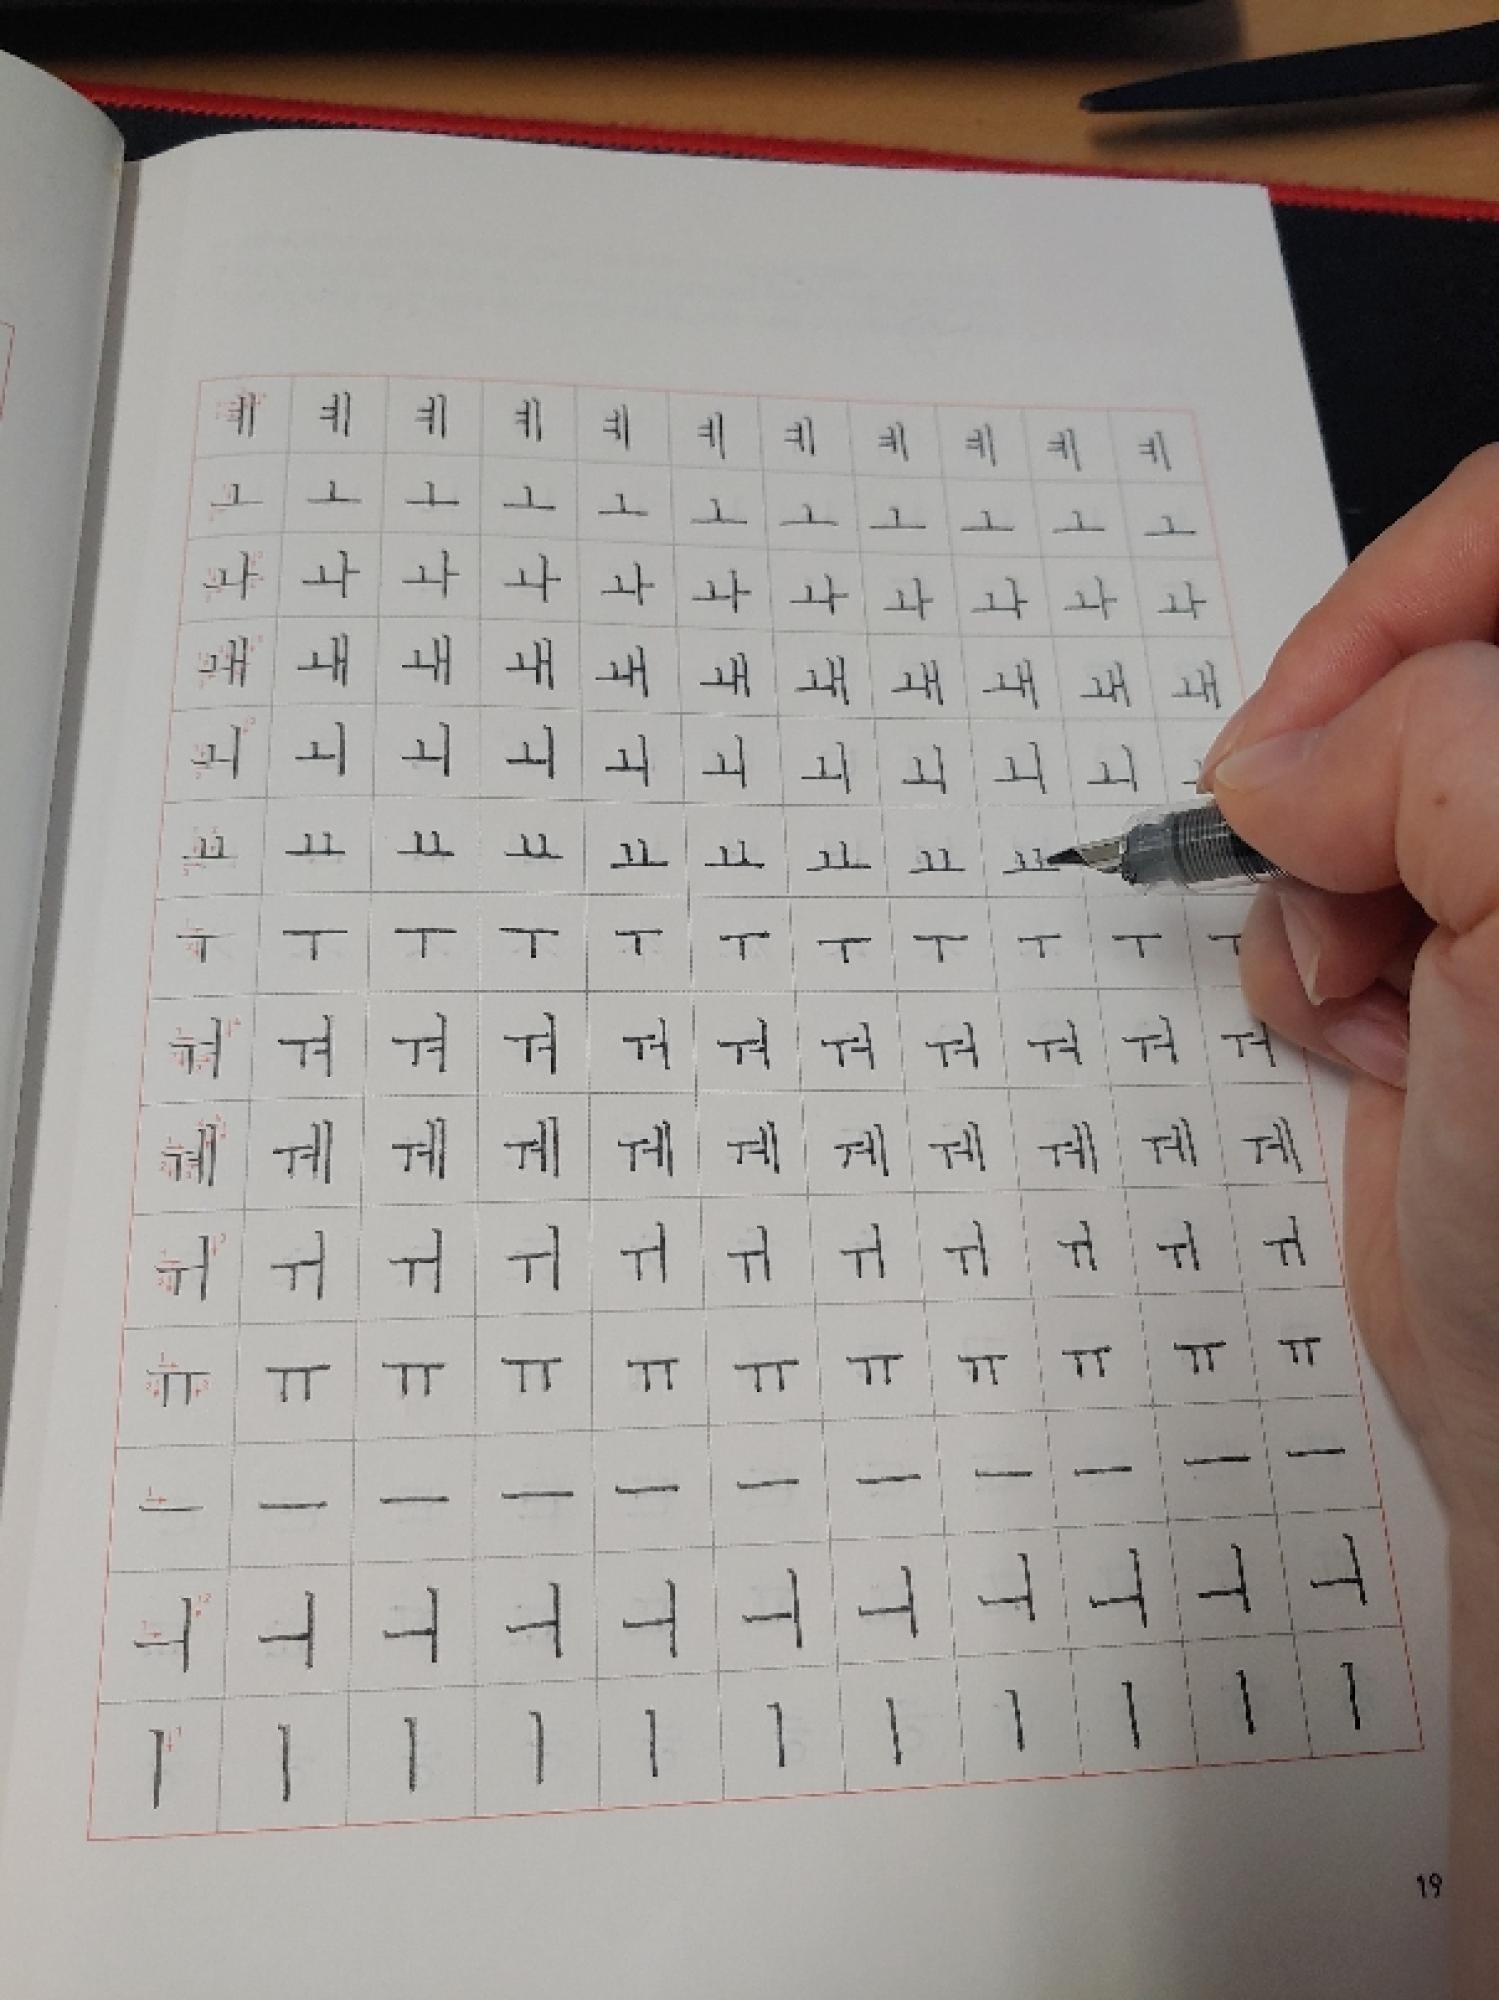 ㅖ ㅖ ㅖ ㅖ ㅖ ㅖ ㅖ ㅖ ㅖ ㅖ ㅖ
ㅗ ㅗ ㅗ ㅗ ㅗ ㅗ ㅗ ㅗ ㅗ ㅗ ㅗ
ㅘ ㅘ ㅘ ㅘ ㅘ ㅘ ㅘ ㅘ ㅘ ㅘ ㅘ
ㅙ ㅙ ㅙ ㅙ ㅙ ㅙ ㅙ ㅙ ㅙ ㅙ ㅙ
ㅚ ㅚ ㅚ ㅚ ㅚ ㅚ ㅚ ㅚ ㅚ ㅚ
ㅛ ㅛ ㅛ ㅛ ㅛ ㅛ ㅛ ㅛ ㅛ
ㅜ ㅜ ㅜ ㅜ ㅜ ㅜ ㅜ ㅜ ㅜ ㅜ ㅜ
ㅝ ㅝ ㅝ ㅝ ㅝ ㅝ ㅝ ㅝ ㅝ ㅝ ㅝ
ㅞ ㅞ ㅞ ㅞ ㅞ ㅞ ㅞ ㅞ ㅞ ㅞ ㅞ
ㅟ ㅟ ㅟ ㅟ ㅟ ㅟ ㅟ ㅟ ㅟ ㅟ ㅟ
ㅠ ㅠ ㅠ ㅠ ㅠ ㅠ ㅠ ㅠ ㅠ ㅠ ㅠ
ㅡ ㅡ ㅡ ㅡ ㅡ ㅡ ㅡ ㅡ ㅡ ㅡ ㅡ
ㅢ ㅢ ㅢ ㅢ ㅢ ㅢ ㅢ ㅢ ㅢ ㅢ ㅢ
ㅣ ㅣ ㅣ ㅣ ㅣ ㅣ ㅣ ㅣ ㅣ ㅣ ㅣ
19